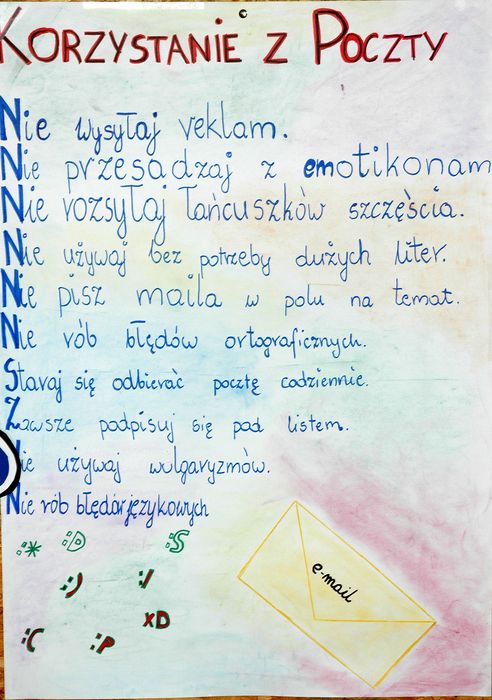 KORZYSTANIE Z POCZTY
Nie wysyłaj reklam.
Nie przesadzaj z emotikonam
Nie rozsyłaj łańcuszków szczęścia.
Nie używaj bez potrzeby dużych liter.
Nie pisz maila w polu na temat.
Nie rób błędów ortograficznych.
Staraj się odbierać pocztę codziennie.
Zawsze podpisuj się pod listem.
Nie używaj wulgaryzmów.
Nie rób błędów językowych
:* :D :S
:) :/
xD
:C :P
e-mail